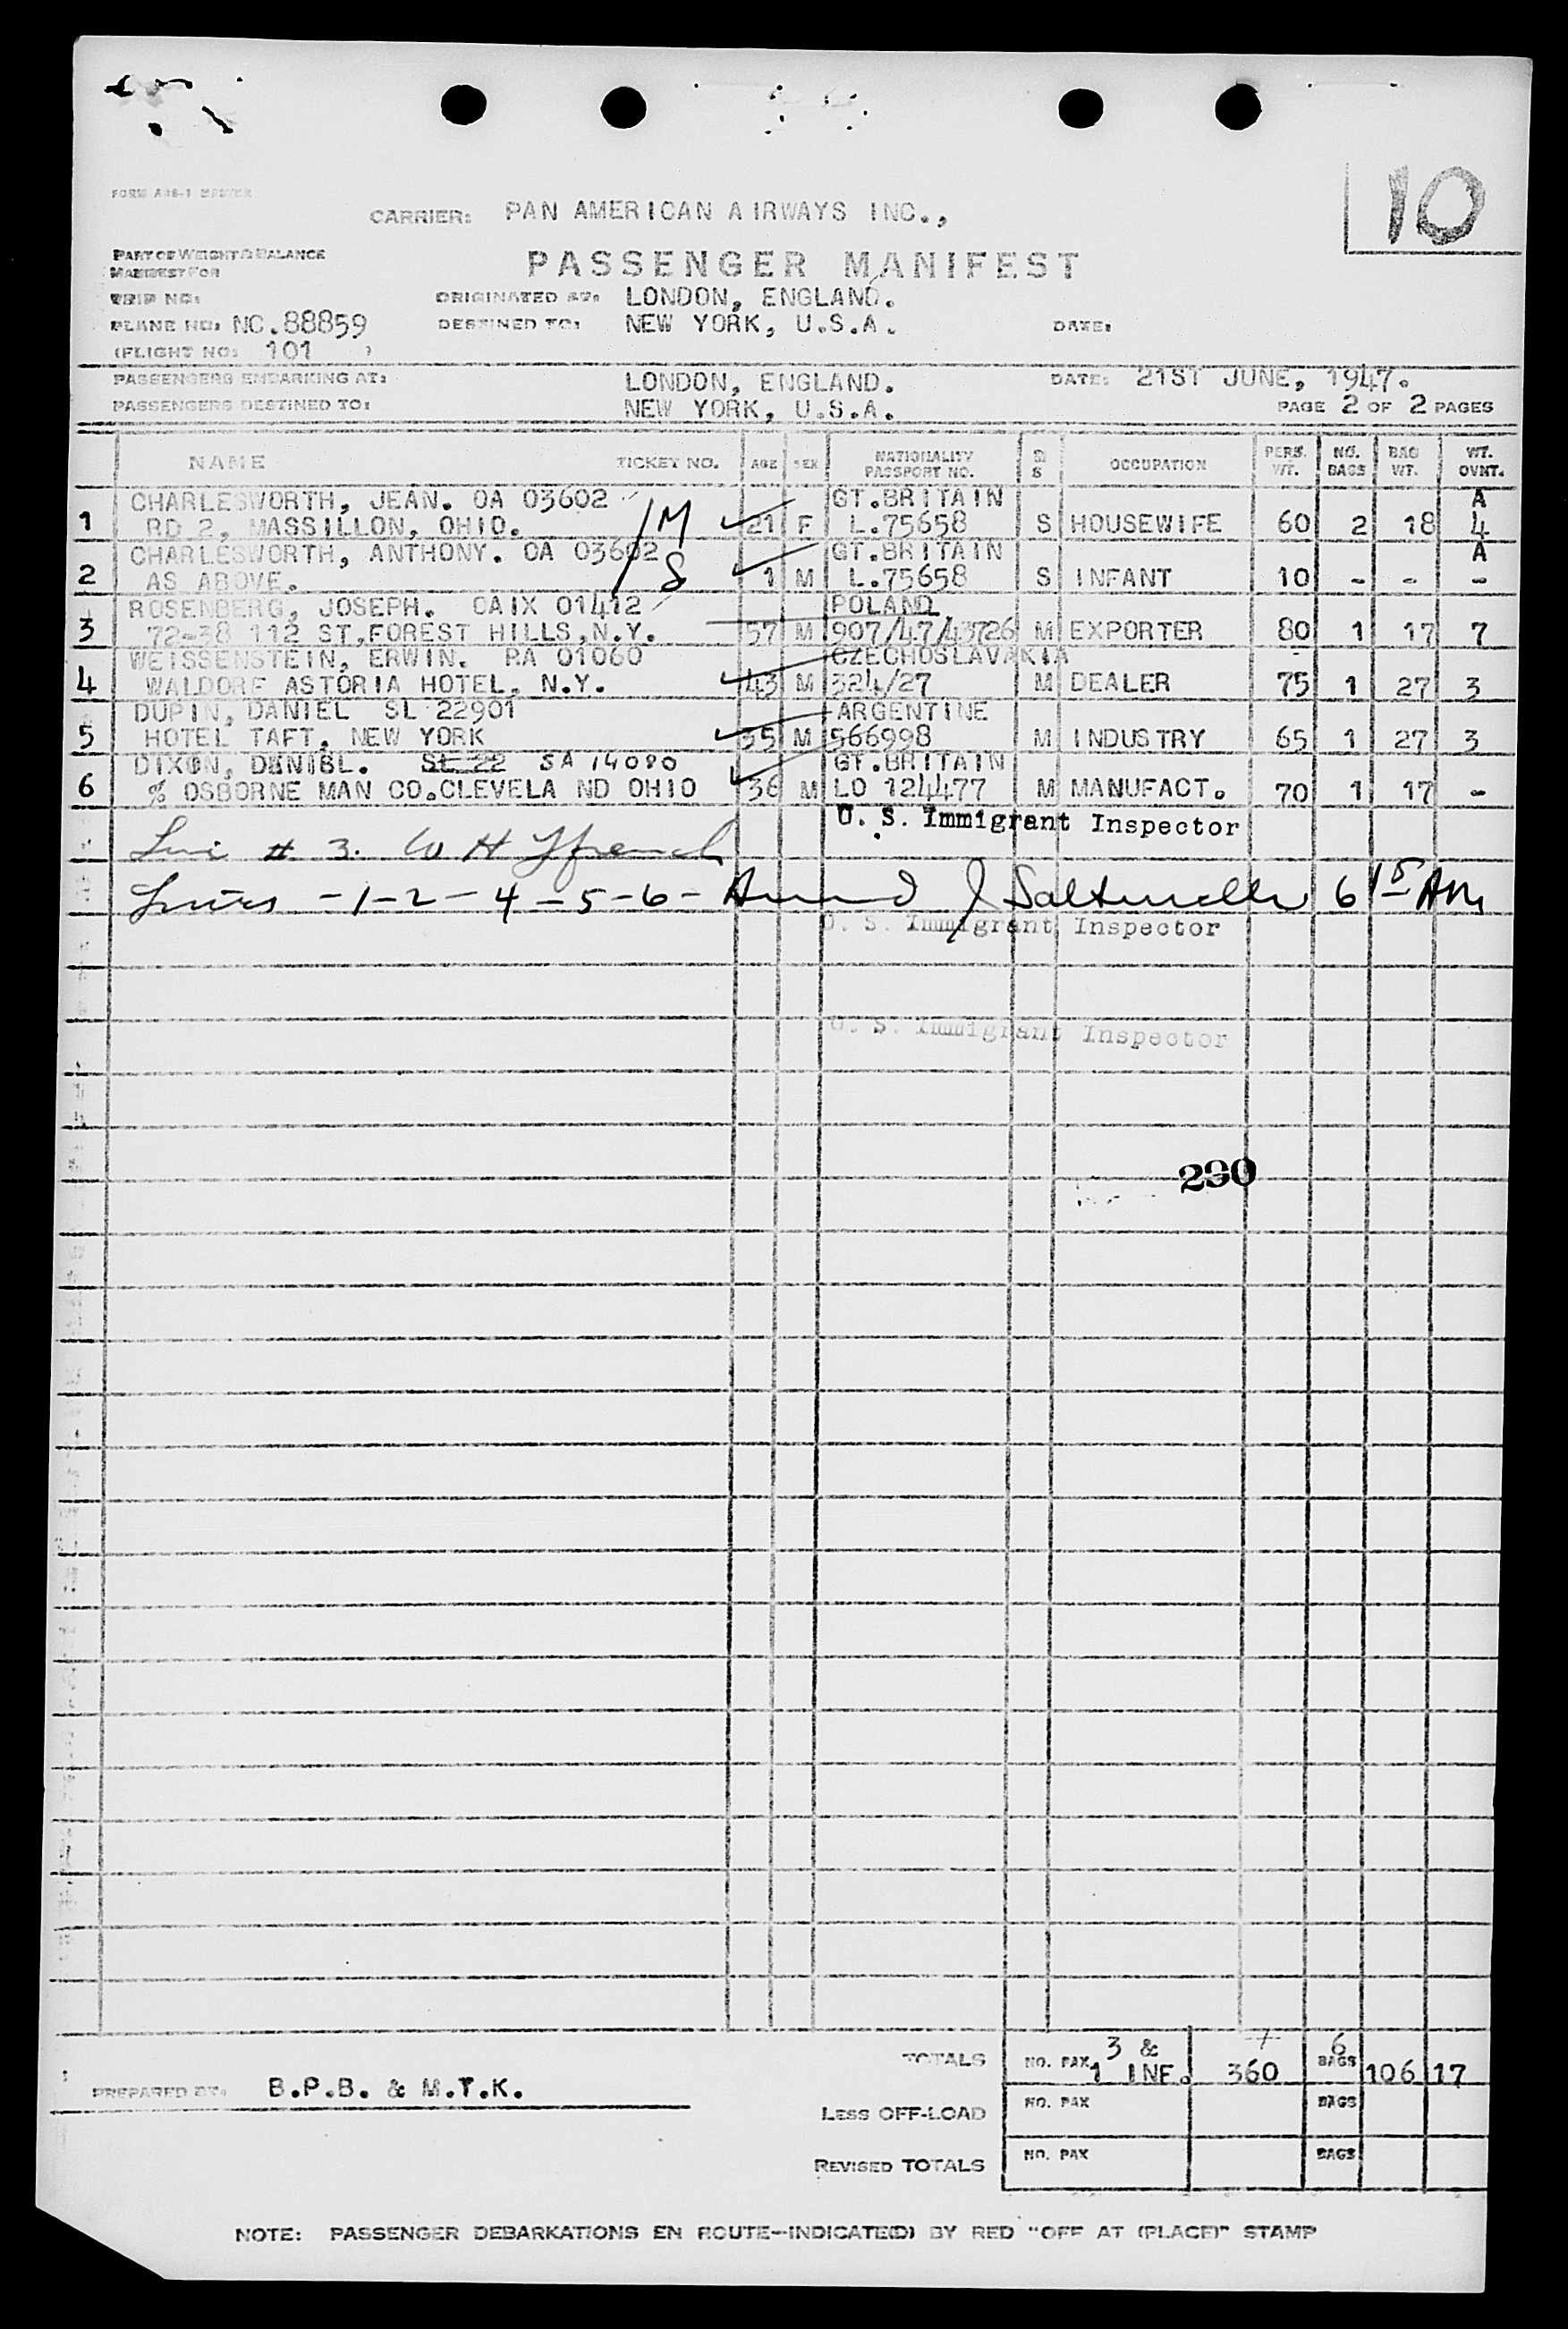 FORM A46-1 MASTER
CARRIER: PAN AMERICAN AIRWAYS INC.,
10
PART OF WEIGHT & BALANCE
MANIFEST FOR
PASSENGER MANIFEST
TRIP NO:
ORIGINATED AT: LONDON, ENGLAND.
PLANE NO: NC.88859 DESTINED TO: NEW YORK, U.S.A. DATE:
(FLIGHT NO: 101 )
PASSENGERS EMBARKING AT: LONDON, ENGLAND. DATE: 21ST JUNE, 1947.
PASSENGERS DESTINED TO: NEW YORK, U.S.A. PAGE 2 OF 2 PAGES
NAME TICKET NO. AGE SEX NATIONALITY PASSPORT NO. M S OCCUPATION PERS. WT. NO. BAGS BAG WT. WT. OVNT.
CHARLESWORTH, JEAN. OA 03602 GT.BRITAIN A
1 RD 2, MASSILLON, OHIO. M 21 F L.75658 S HOUSEWIFE 60 2 18 4
CHARLESWORTH, ANTHONY. OA 03602 GT.BRITAIN A
2 AS ABOVE. S 1 M L.75658 S INFANT 10 - - -
ROSENBERG, JOSEPH. OAIX 01412 POLAND
3 72-38 112 ST,FOREST HILLS,N.Y. 57 M 907/47/43726 M EXPORTER 80 1 17 7
WEISSENSTEIN, ERWIN. PA 01060 CZECHOSLAVAKIA
4 WALDORF ASTORIA HOTEL, N.Y. 43 M 324/27 M DEALER 75 1 27 3
DUPIN, DANIEL SL 22901 ARGENTINE
5 HOTEL TAFT, NEW YORK 35 M 566998 M INDUSTRY 65 1 27 3
DIXON, DENIBL. SL 22 SA 14080 GT.BRITAIN
6 % OSBORNE MAN CO.CLEVELA ND OHIO 36 M LO 124477 M MANUFACT. 70 1 17 -
U. S. Immigrant Inspector
# 3. W H
-1-2-4-5-6- 6 15 AM
U. S. Immigrant Inspector
U. S. Immigrant Inspector
290
TOTALS NO. PAX 3 & 1 INF. 360 6 BAGS 106 17
PREPARED BY: B.P.B. & M.T.K.
LESS OFF-LOAD NO. PAX BAGS
REVISED TOTALS NO. PAX BAGS
NOTE: PASSENGER DEBARKATIONS EN ROUTE-INDICATE(D) BY RED "OFF AT (PLACE)" STAMP